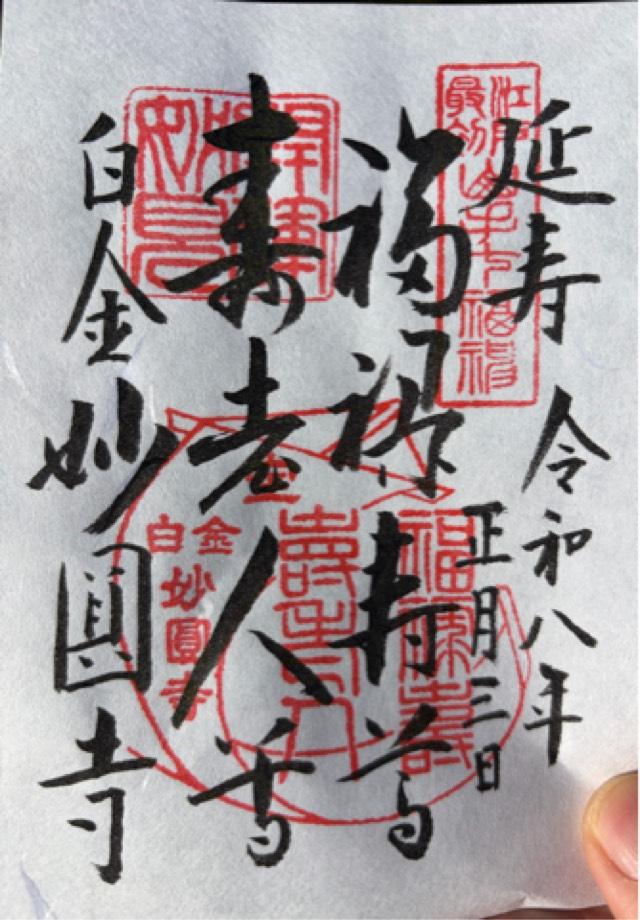 延寿
令和八年
正月三日
福禄寿尊
寿老人尊
白金妙圓寺
江戸最初山手七福神
開運
妙見
福禄壽
壽老人
白金
妙圓寺